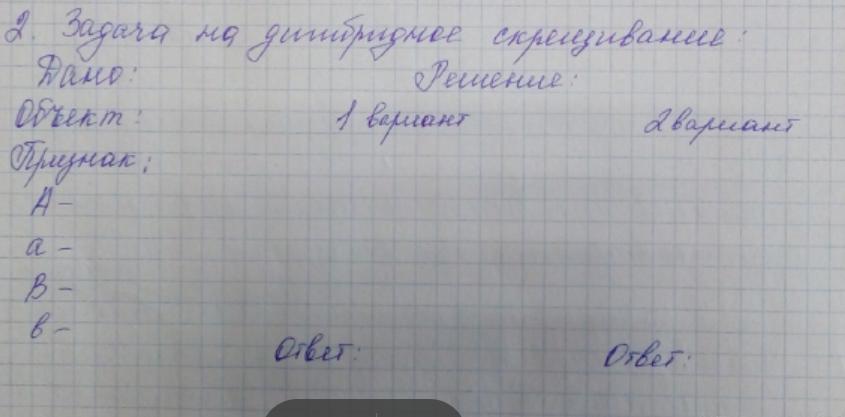 2. Задача на дигибридное скрещивание:
Дано: Решение:
Объект: 1 вариант 2 вариант
Признак:
А -
а -
В -
в -
Ответ: Ответ: